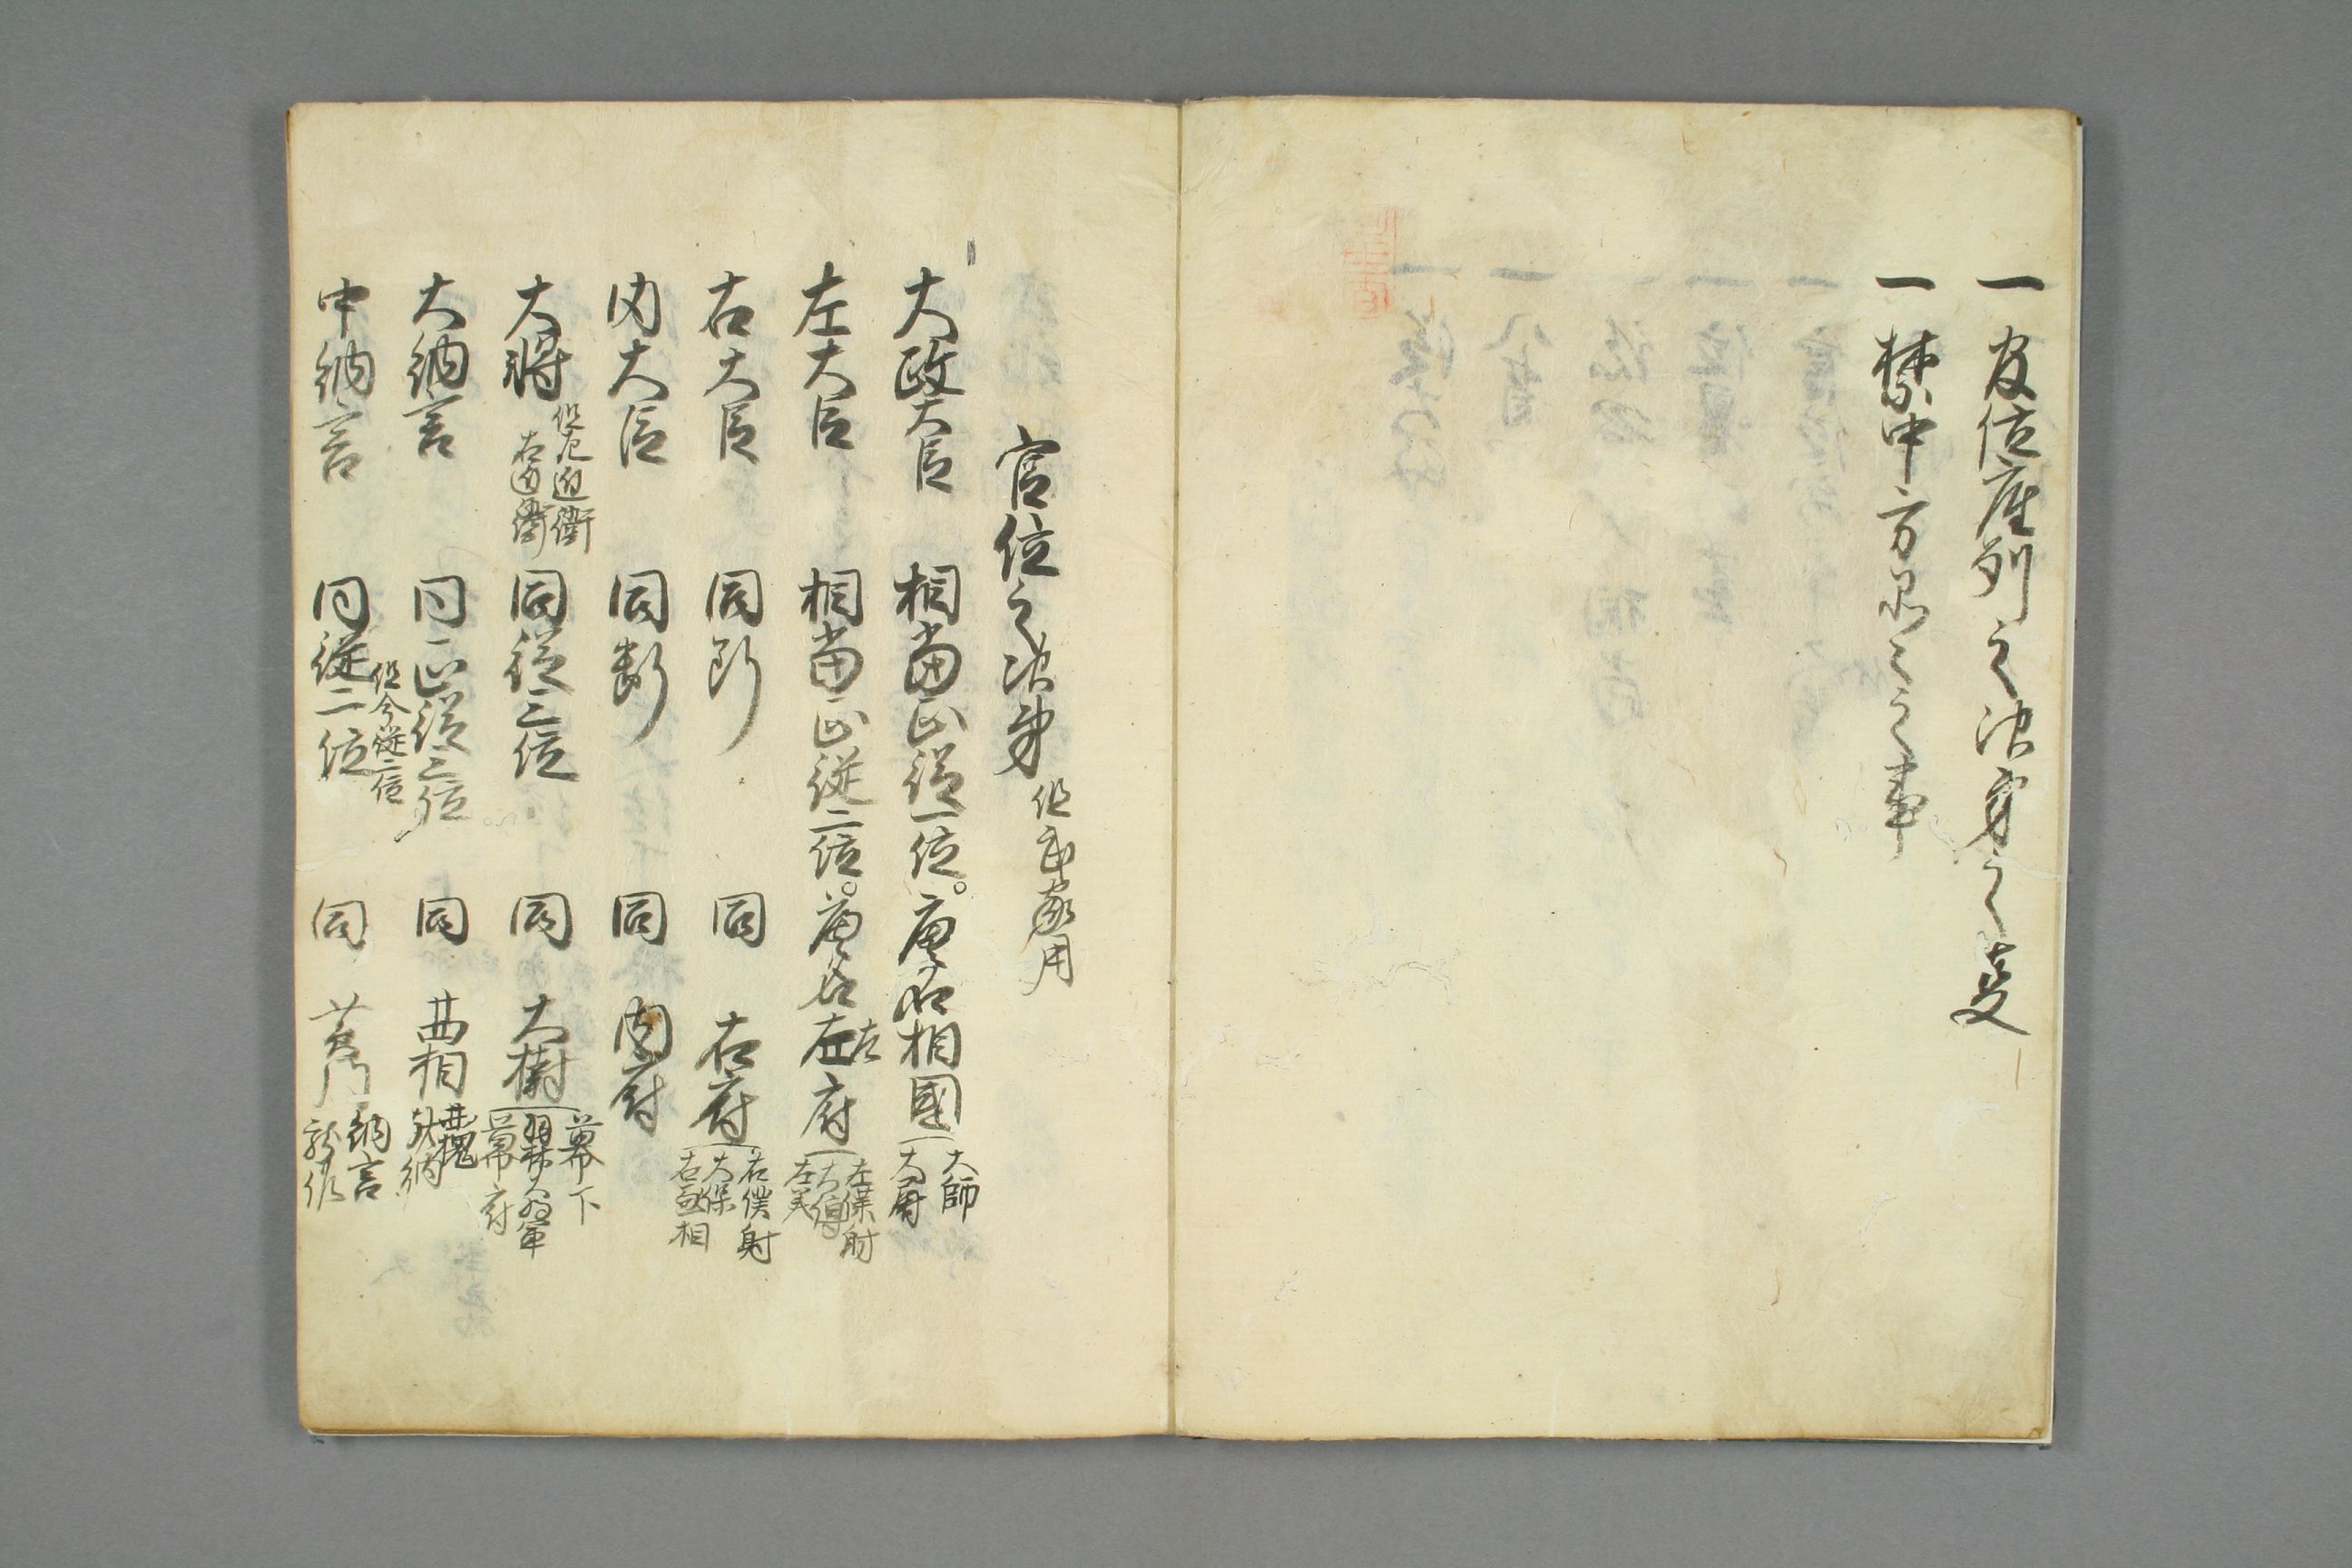 一 官位座列之次第之事
一 禁中方
之事
官位之次第 但武家用
大政大臣 相当正従一位。唐名相國 大師
左大臣 相当正従二位。唐名左府 左僕射 大傅
右大臣 同断 同 右府 右僕射 大保 右丞相
内大臣 同断 同 内府
大将 但左近衛 右近衛 同従三位 同 大樹 幕下 羽林大将軍 幕府
大納言 同正従三位 同 亜相 亜槐
中納言 同従二位 但今従三位 同 黄門 納言